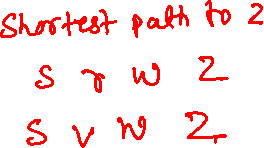 Shortest path to 2
S r w 2
S v w 2